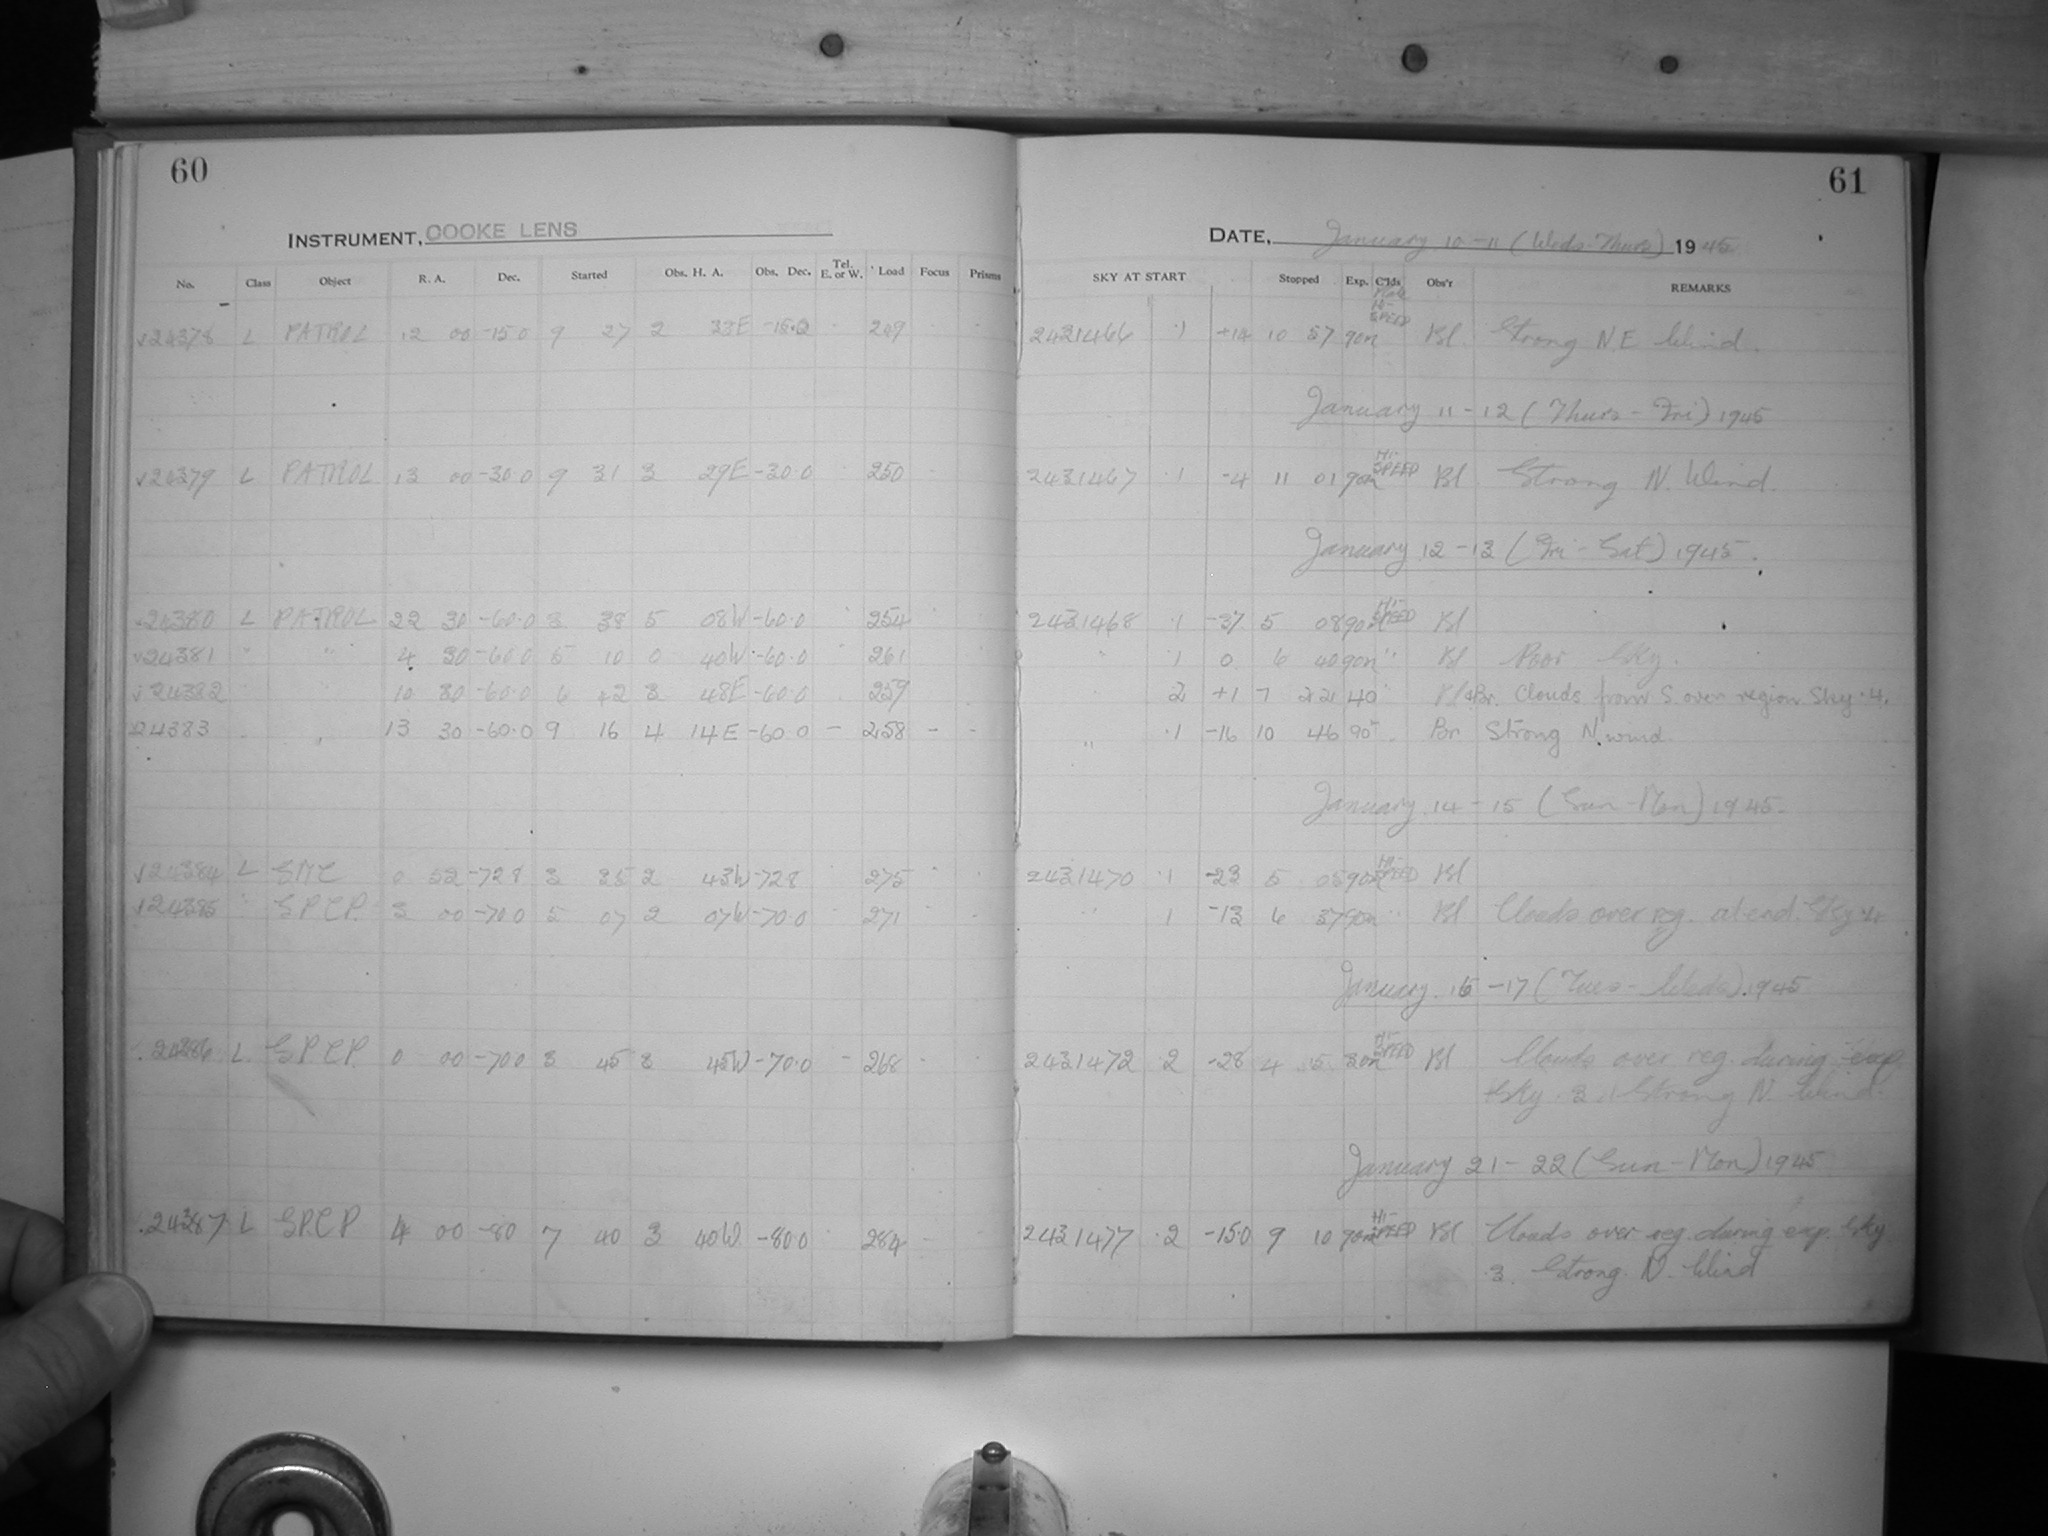 60
INSTRUMENT, COOKE LENS
No. Class Object R. A. Dec. Started Obs. H. A. Obs. Dec. Tel. E. or W. Load Focus Prisms
24378 L PATROL 12 00 -15.0 9 27 2 33E -15.0 249
24379 L PATROL 13 00 -30.0 9 31 3 29E -30.0 250
24380 L PATROL 22 30 -60.0 3 38 5 08W -60.0 254
24381 " " 4 30 -60.0 5 10 0 40W -60.0 261
24382 10 30 -60.0 6 42 3 48E -60.0 259
24383 " 13 30 -60.0 9 16 4 14E -60.0 - 258 - -
24384 L SMC 0 52 -72.8 3 35 2 43W -72.8 275
24385 " S.P.C.P. 3 00 -70.0 5 07 2 07W -70.0 271
24386 L S.P.C.P. 0 00 -70.0 3 45 3 45W -70.0 - 268
24387 L S.P.C.P 4 00 -80 7 40 3 40W -80.0 284
61
DATE, January 10-11 (Weds-Thurs) 1945
SKY AT START Stopped Exp. C'lds Obs'r REMARKS
HI-SPEED
2431466 .1 +14 10 57 90m Bl. Strong N.E Wind.
January 11-12 (Thurs-Fri) 1945
2431467 .1 -4 11 01 90m HI-SPEED Bl Strong N. Wind.
January 12-13 (Fri-Sat) 1945.
2431468 .1 -37 5 08 90m HI-SPEED Bl
" .1 0 6 40 90m " Bl Poor Sky.
2 +1 7 22 40 " Bl & Br. Clouds from S over region Sky .4.
" .1 -16 10 46 90 Br Strong N. wind.
January 14-15 (Sun-Mon) 1945.
2431470 .1 -23 5 05 90m HI-SPEED Bl
" 1 -13 6 37 90m " Bl Clouds over reg. at end. Sky .4
January 16-17 (Tues-Weds) 1945
2431472 .2 -28 4 15 30m HI-SPEED Bl Clouds over reg. during exp.
Sky .3. Strong N. Wind.
January 21-22 (Sun-Mon) 1945
2431477 .2 -15.0 9 10 90m HI-SPEED Bl Clouds over reg. during exp. Sky
.3. Strong N. Wind